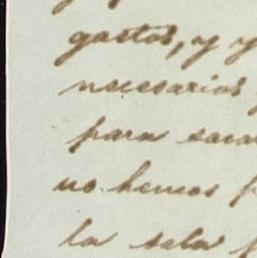 gastos, y y
necesarios
para saca
no hemos p
la sala p